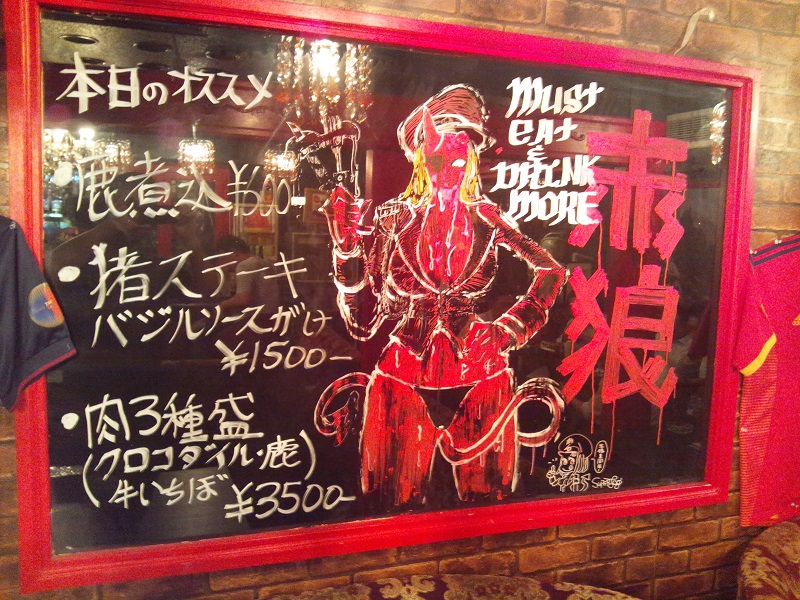 本日のオススメ
・鹿煮込¥600-
・猪ステーキ
バジルソースがけ
¥1500-
・肉3種盛
(クロコダイル・鹿)
牛いちぼ
¥3500-
MUST
EAT
&
DRINK
MORE
赤狼